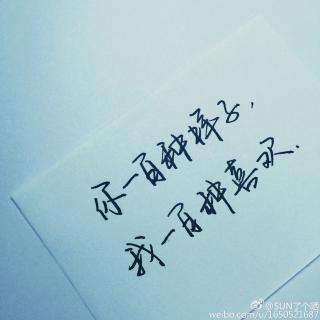 你一百种样子,
我一百种喜欢.
@SUN了个晒
weibo.com/u/1650521687